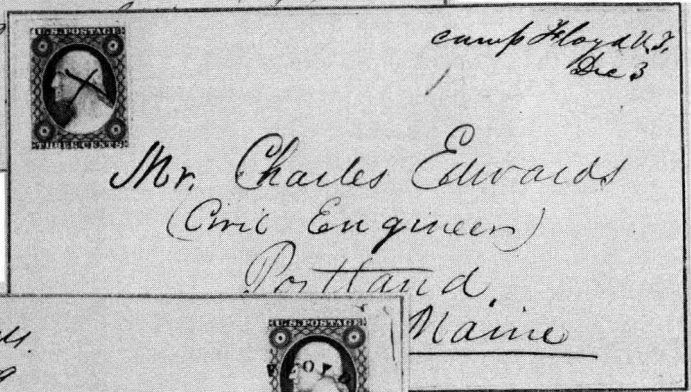 U.S. POSTAGE
THREE CENTS
camp Floyd U.T.
Dec 3
Mr. Charles Edwards
(Civil Engineer)
Portland
Maine
U.S. POSTAGE
FLOYD